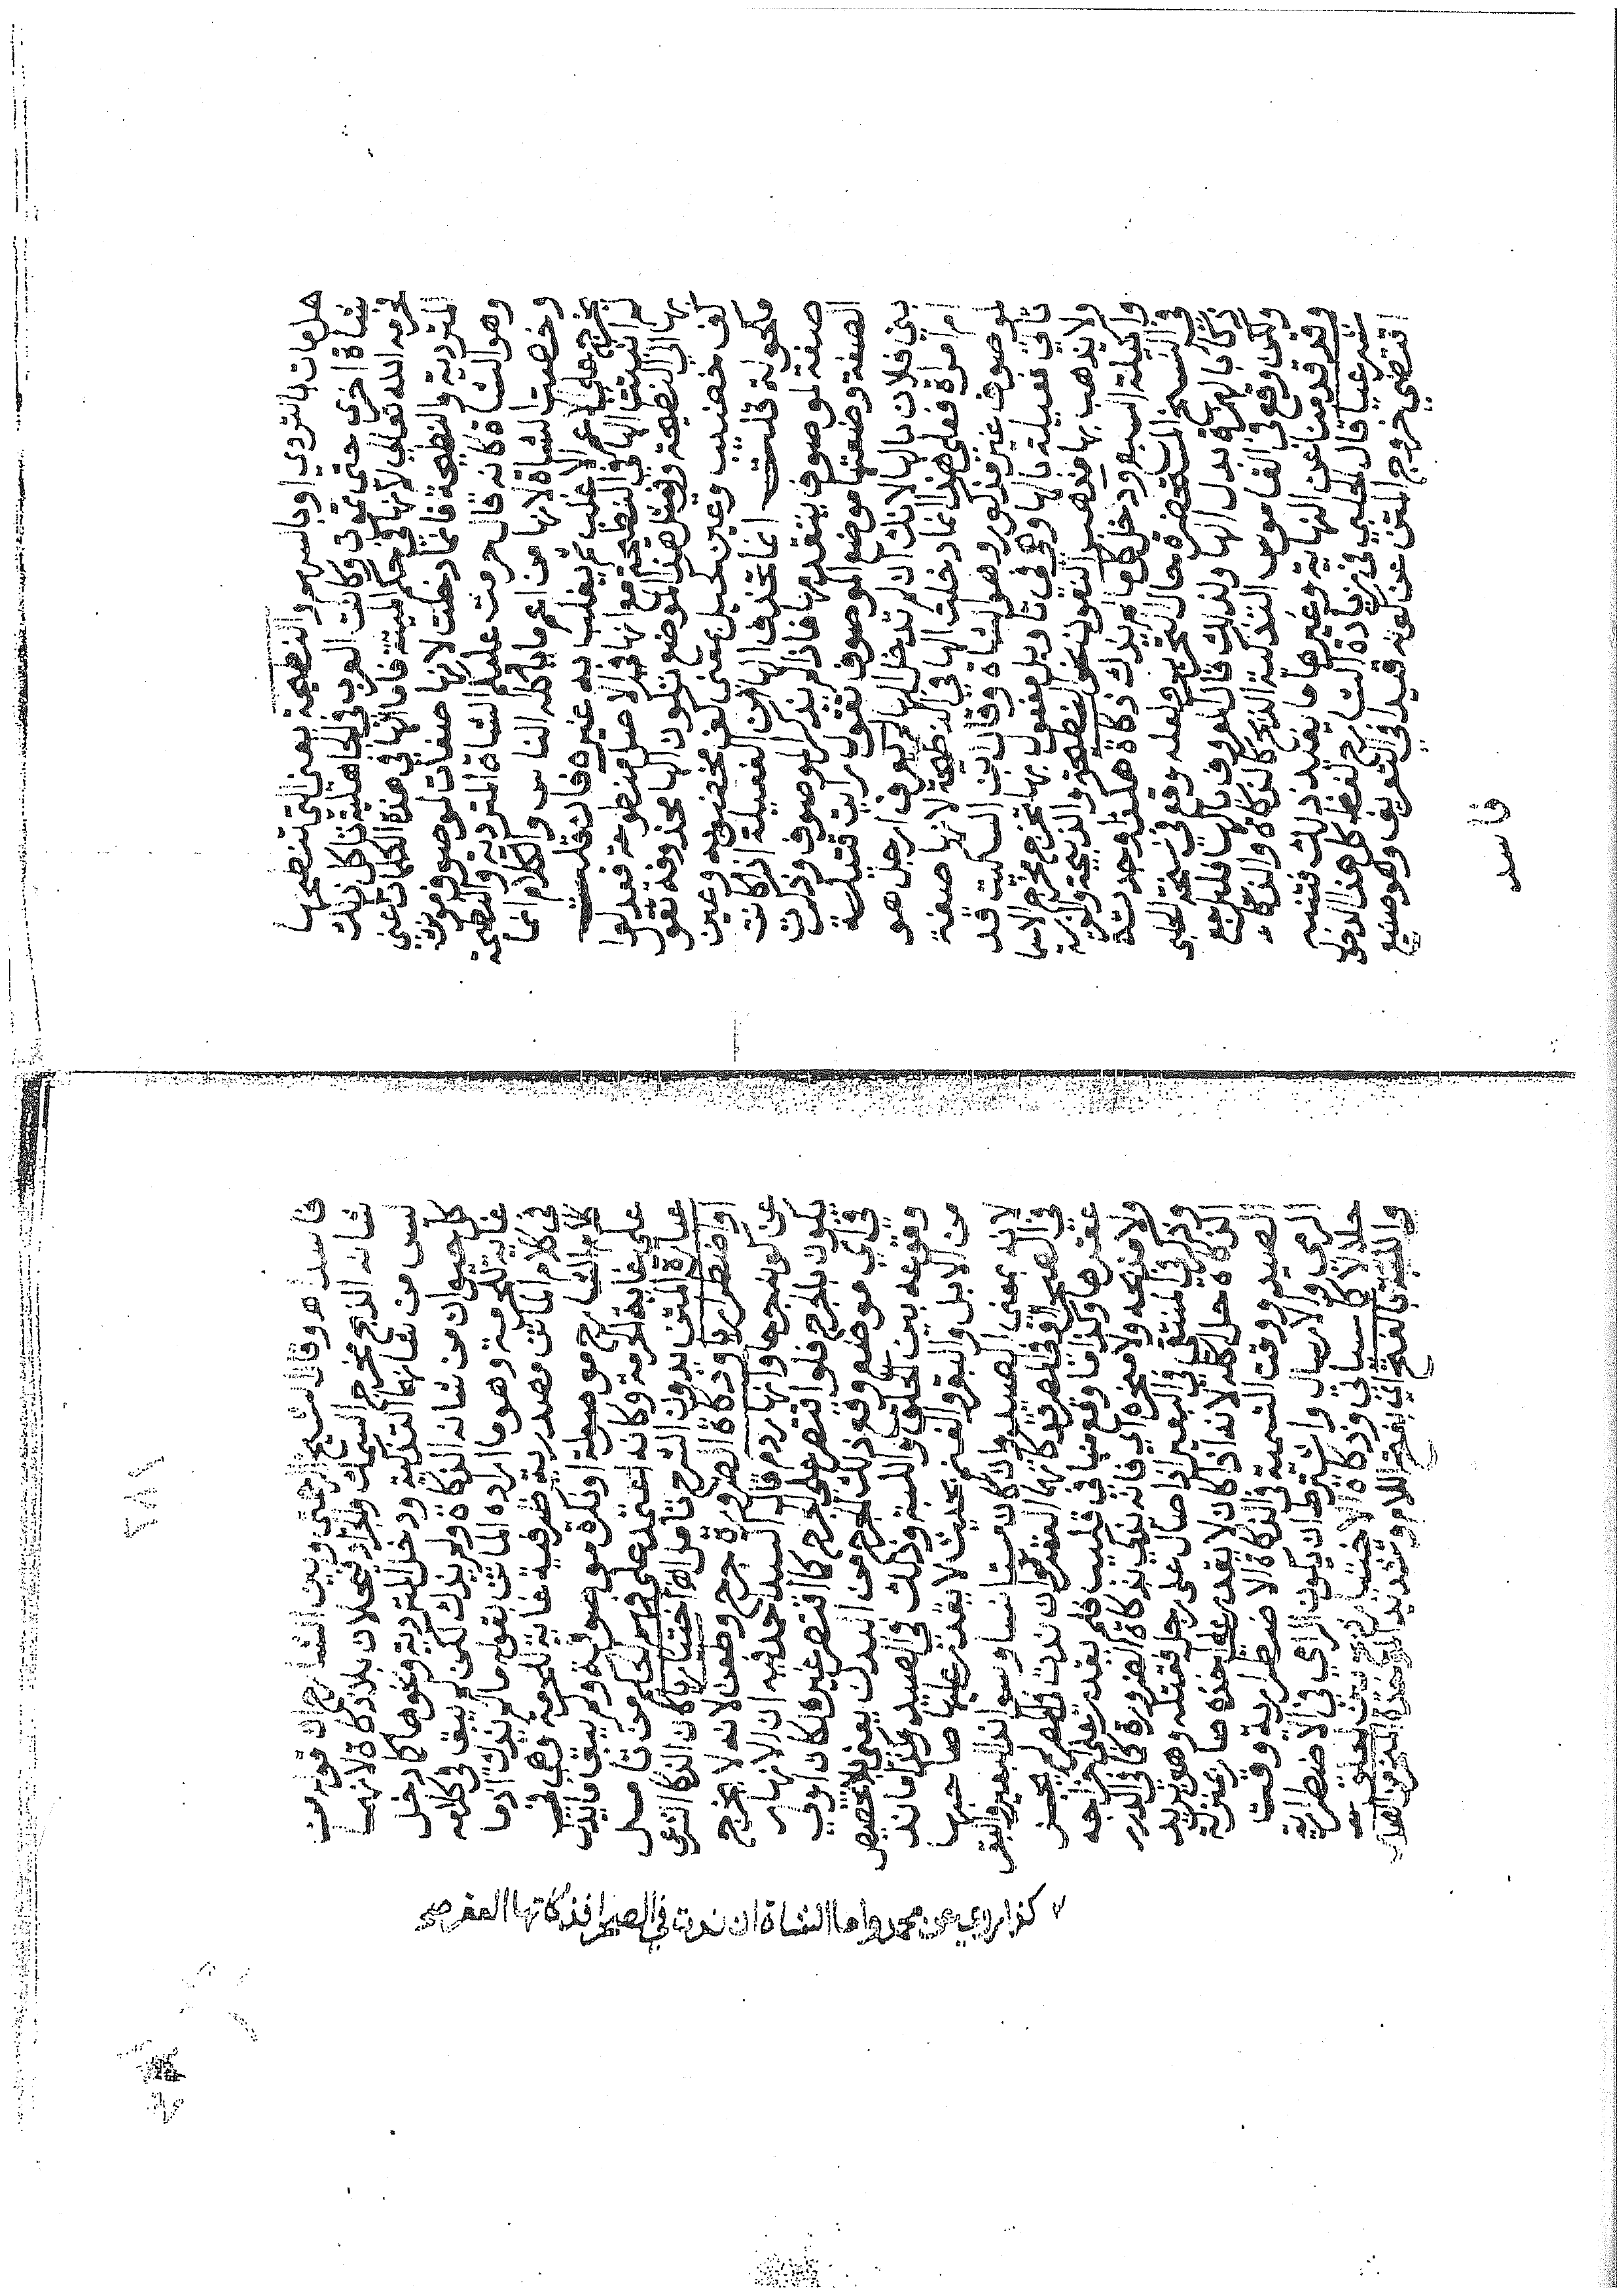 هل مات بالتردي او بالسهم والنطيحة يعني التي تنطحها
شاة اخرى حتى تموت وكانت العرب في الجاهلية تاكل ذلك
فحرمه الله تعالى لانها في حكم الميتة فاما الهاء في هذه الكلمات اعني
المتردية والنطيحة فانما دخلت لانها صفات لموصوف مونث
وهو الشاة كانه قال حرمت عليكم الشاة المتردية والنطيحة
وخصت الشاة لانها من اعم ما ياكله الناس والكلام انما
يخرج على الاعم الاغلب ثم يغلب به غيره فان قلت
لم اثبتت الهاء في النطيحة مع انها في الاصل منطوحة فعدلوا
بها الى النطيحة وفي مثل هذا الموضع تكون الهاء محذوفة تقول
كف خضيب وعين كحيل بمعنى كف مخضوبة وعين
مكحولة قلت انما تحذف الهاء من الفعيلة اذا كانت
صفة لموصوف يتقدمها فاذا لم يذكر الموصوف وذكرت
الصفة وضعتها موضع الموصوف تقول رايت قتيلة
بني فلان بالهاء لانك ان لم تدخل الهاء لم يعرف ارجل هو
ام امراة فعلى هذا انما دخلت الهاء في النطيحة لانها صفة
لموصوف غير مذكور وهو الشاة وقال ابن السكيت قد
تاتي فعيلة بالهاء وهي في تاويل مفعول بها تخرج مخرج الاسماء
ولا يذهب بها مذهب النعوت نحو النطيحة والذبيحة والفريسة
واكيلة السبع ودخل كل ما لم يذك ذكاة هكذا وجدته
في النسخ المستحضرة حال التحرير ولعله وقع في نسخة الحلبي
ذكاء بالهمزة بدل الهاء ولذلك قال المعروف بالهاء فليراجع
ولكن وقع في القاموس التذكية الذبح كالذكاة والذكاء
وقد قدمنا عن النهاية وغيرها ما يفيد ذلك فتنبه
شرعيا قال الحلبي في زيادة الشارح لفظ كل هذا الدخول
اقتضى خروج المتن عن كونه قيدا في التعريف وهو صنيع
فاسد
٢٨٧
فاسد اهـ وقال الشيخ الرحمتي وبين الشارح ان قوله من
شانه الذبح يخرج السمك والجراد فيحلان بلا ذكاة لانهما
ليس من شانهما التذكية ودخل المتردية ونحوها كما دخل
كل حيوان من شانه الذكاة ولم يذك لكن لم يبق في كلامه
غاية للحرمة وهو ما اراده الماتن بقوله ما لم يذك اذ ما
في كلام الماتن مصدرية ظرفية غاية للحرمة وهي في
كلام الشارح موصولة او نكرة موصوفة ولم يبق ما يدل
على غاية الحرمة وكانه اعتمد على فهم الحكم من تامل
عبارة المتن بدون الشرح تامل اهـ اختيارا كان الذكاء الشرعي
او اضطراريا وذكاة الضرورة جرح وطعن لانه لا يخرج
عن كونه جرحا وانهار دم قال السيد احمد فيه ان الانهار
يكون بالجرح فلو اقتصر على الجرح كما اقتصر غيره لكان اولى
في اي موضع وقع ذلك الجرح من البدن يعني بلا تخصيص
وقوعه بين الحلق واللبة وذلك في الصيد وكذا ما ند
من الابل والبقر والغنم بحيث لا يقدر عليها صاحبها
لانه بمعنى الصيد وان كان مستانسا وسواء ند البعير والبقر
في الصحراء او في المصر فذكاتهما العقر وان ندت في المصر لم يجز
عقرها وكذا ما وقع منها في قليب فلم يقدر على اخراجه
ولا مذبحه ولا منحره اي فانه يذكي بذكاة الضرورة كما في الدرر
وذكر في المنتقى في البعير اذا صال على رجل فقتله وهو يريد
الذكاة حل اكله لانه اذا كان لا يقدر على اخذه صار بمنزلة
الصيد ووقت التسمية في الذكاة الاضطرارية وقت
الرمي والارسال واشترط ان يكون الرامي في الاضطرارية
حلالا كما سياتي وذكاة الاختيار ذبح بين الحلق
واللبة بالفتح اي بفتح اللام وتشديد الموحدة المنحر من الصدر
لا كذا روي عن محمد واما الشاة ان ندت في الصحراء فذكاتها العقر صح